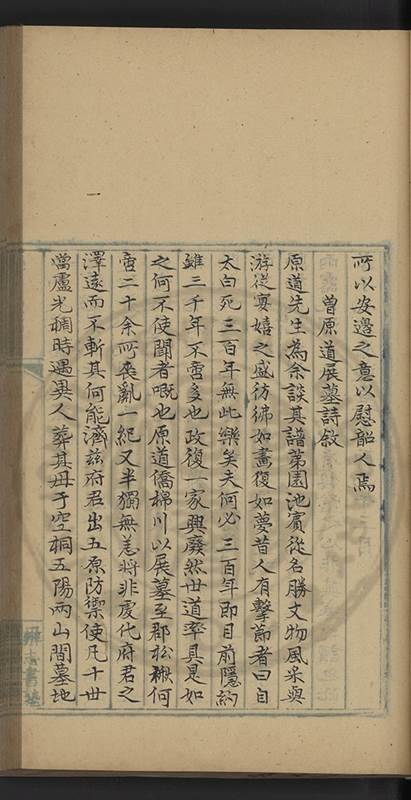 所以安邊之意以慰韶人焉
曾原道展墓詩敘
原道先生為余談其譜第園池賓從名勝文物風采與
游從宴嬉之盛彷彿如畫復如夢昔人有擊節者曰自
太白死三百年無此樂矣夫何必三百年即目前隱約
雖三千年不啻多也政復一家興廢然世道率具是如
之何不使聞者嘅也原道僑梯川以展墓至郡松楸何
啻二十余所喪亂一紀又半獨無恙將非處代府君之
澤遠而不斬其何能濟茲府君出五原防禦使凡十世
當盧光稠時遇異人葬其母于空桐五陽兩山間墓地